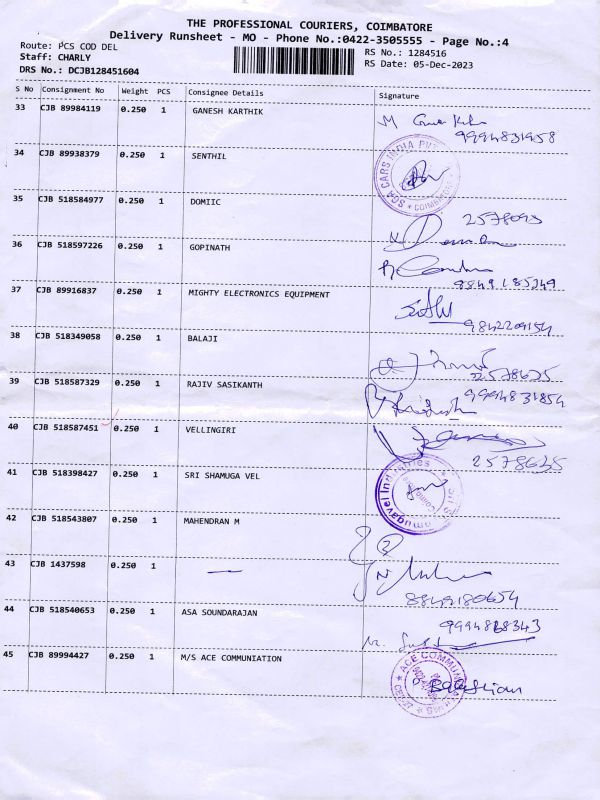 THE PROFESSIONAL COURIERS, COIMBATORE
Delivery Runsheet - MO - Phone No.:0422-3505555 - Page No.:4
Route: PCS COD DEL
Staff: CHARLY
DRS No.: DCJB128451604
RS No.: 1284516
RS Date: 05-Dec-2023
S No Consignment No Weight PCS Consignee Details Signature
33 CJB 89984119 0.250 1 GANESH KARTHIK
9994831958
34 CJB 89938379 0.250 1 SENTHIL
SGA CARS INDIA PVT
COIMBATORE
35 CJB 518584977 0.250 1 DOMIIC
36 CJB 518597226 0.250 1 GOPINATH
37 CJB 89916837 0.250 1 MIGHTY ELECTRONICS EQUIPMENT
9842209154
38 CJB 518349058 0.250 1 BALAJI
2578635
39 CJB 518587329 0.250 1 RAJIV SASIKANTH
9994831854
40 CJB 518587451 0.250 1 VELLINGIRI
2578635
41 CJB 518398427 0.250 1 SRI SHAMUGA VEL
42 CJB 518543807 0.250 1 MAHENDRAN M
43 CJB 1437598 0.250 1 —
8849180654
44 CJB 518540653 0.250 1 ASA SOUNDARAJAN
45 CJB 89994427 0.250 1 M/S ACE COMMUNIATION
ACE